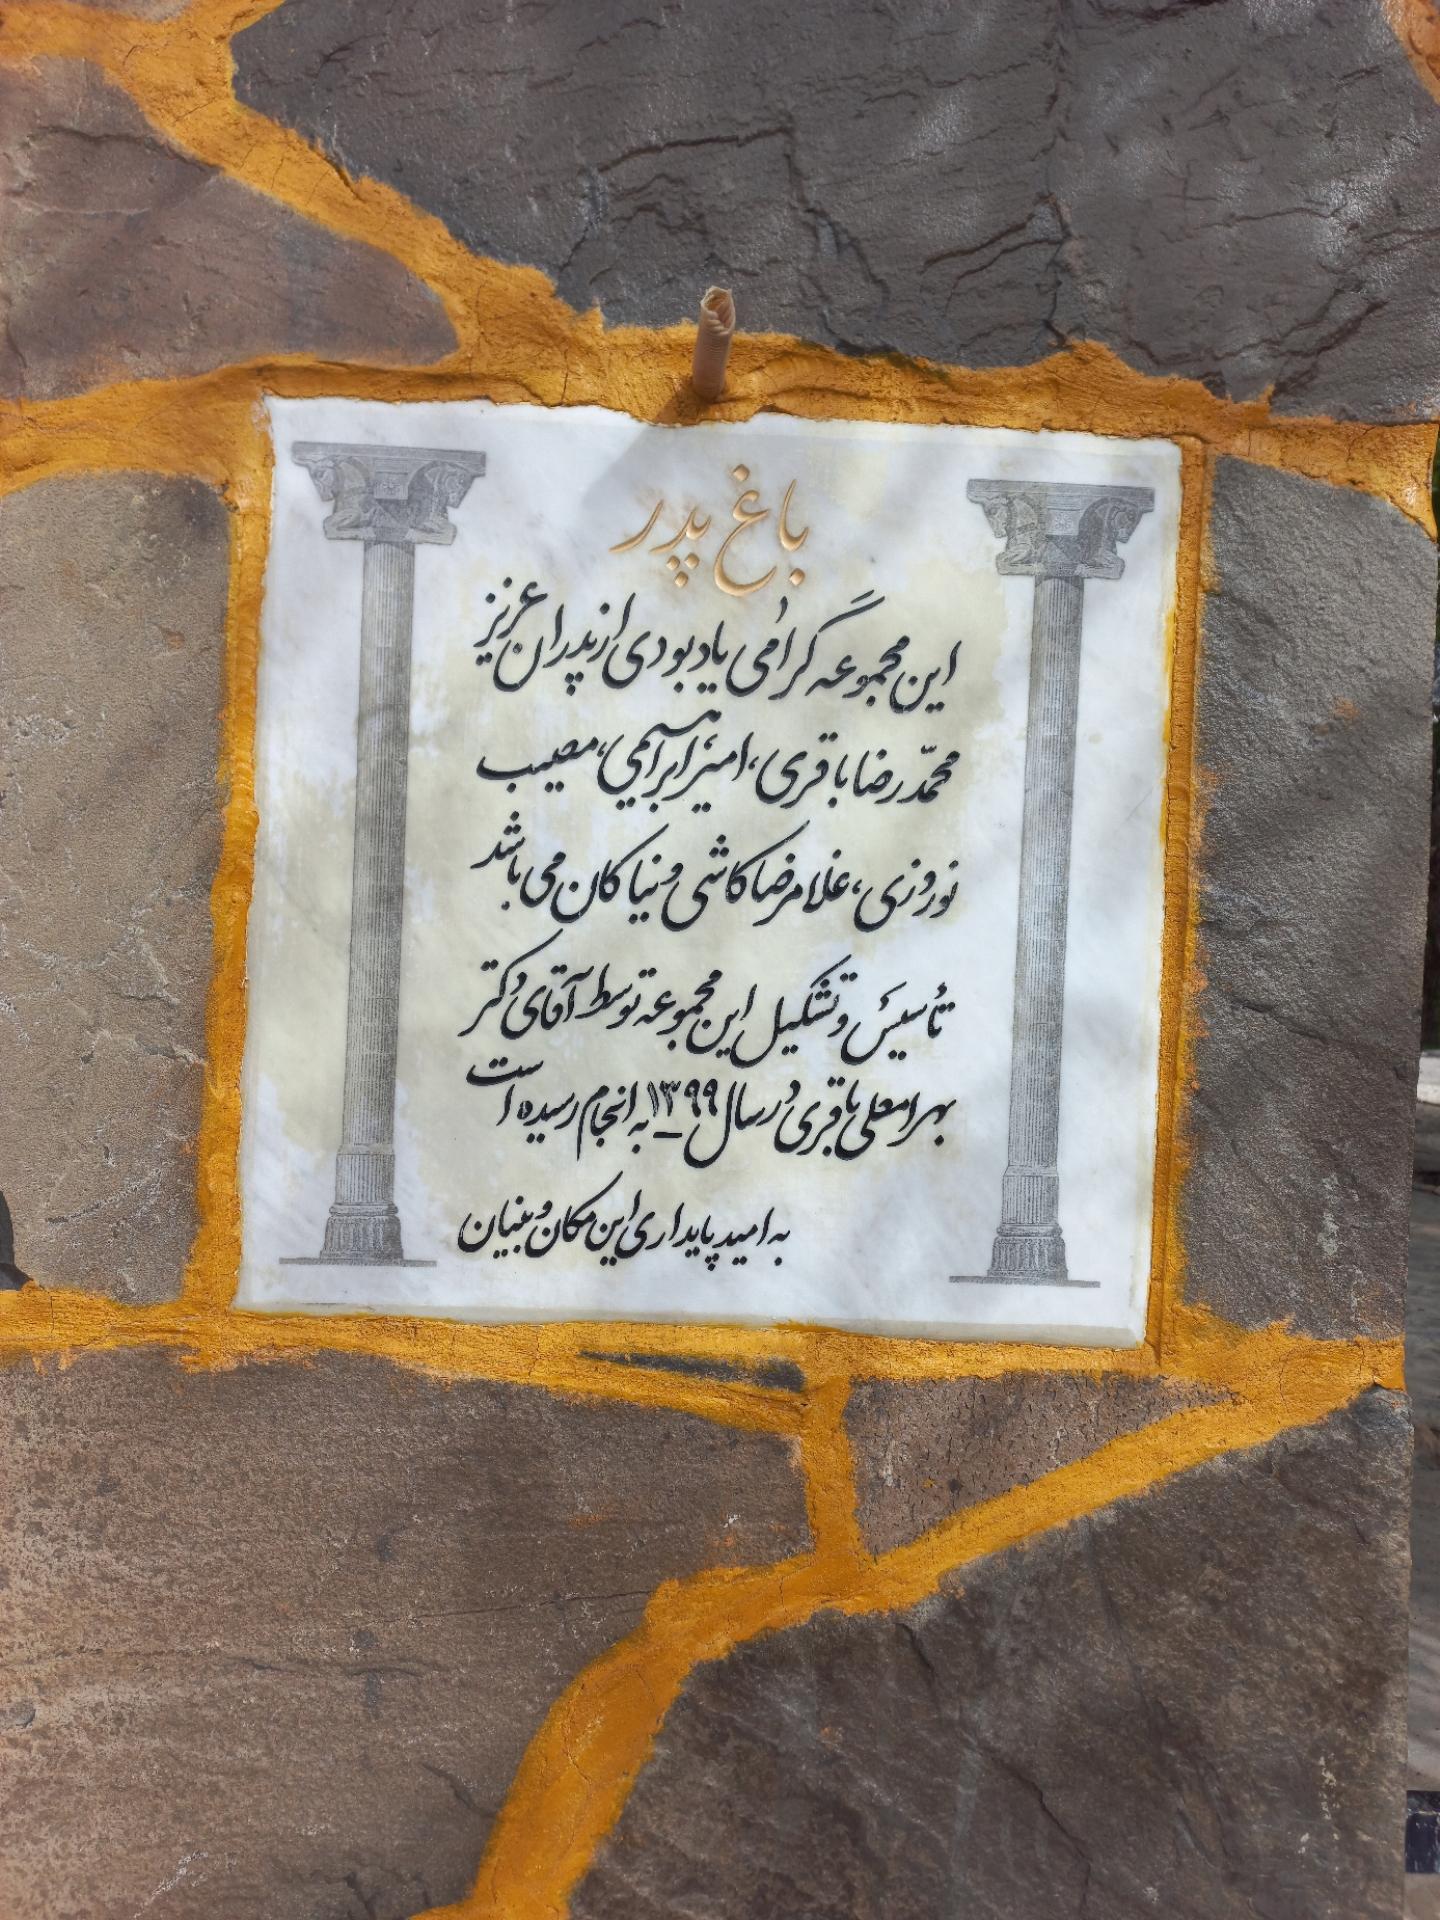 باغ پدر
این مجموعه گرامی یادبودی از پدران عزیز
محمّدرضا باقری، امیر ابراهیمی، مصیب
نوروزی، غلامرضا کاشی و نیاکان می باشد
تأسیس و تشکیل این مجموعه توسط آقای دکتر
بهرامعلی باقری در سال ۱۳۹۹ به انجام رسیده است
به امید پایداری این مکان و بنیان